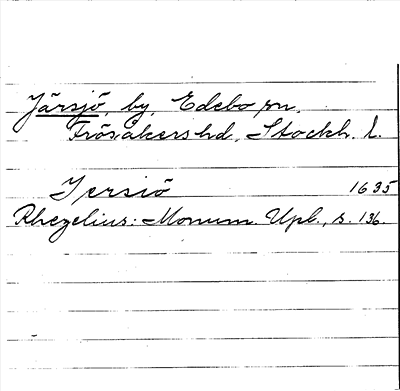 Järsjö, by, Edebo sn,
Frösåkers hd, Stockh. l.
Jersiö 1635
Rhezelius: Monum. Upl., s. 136.